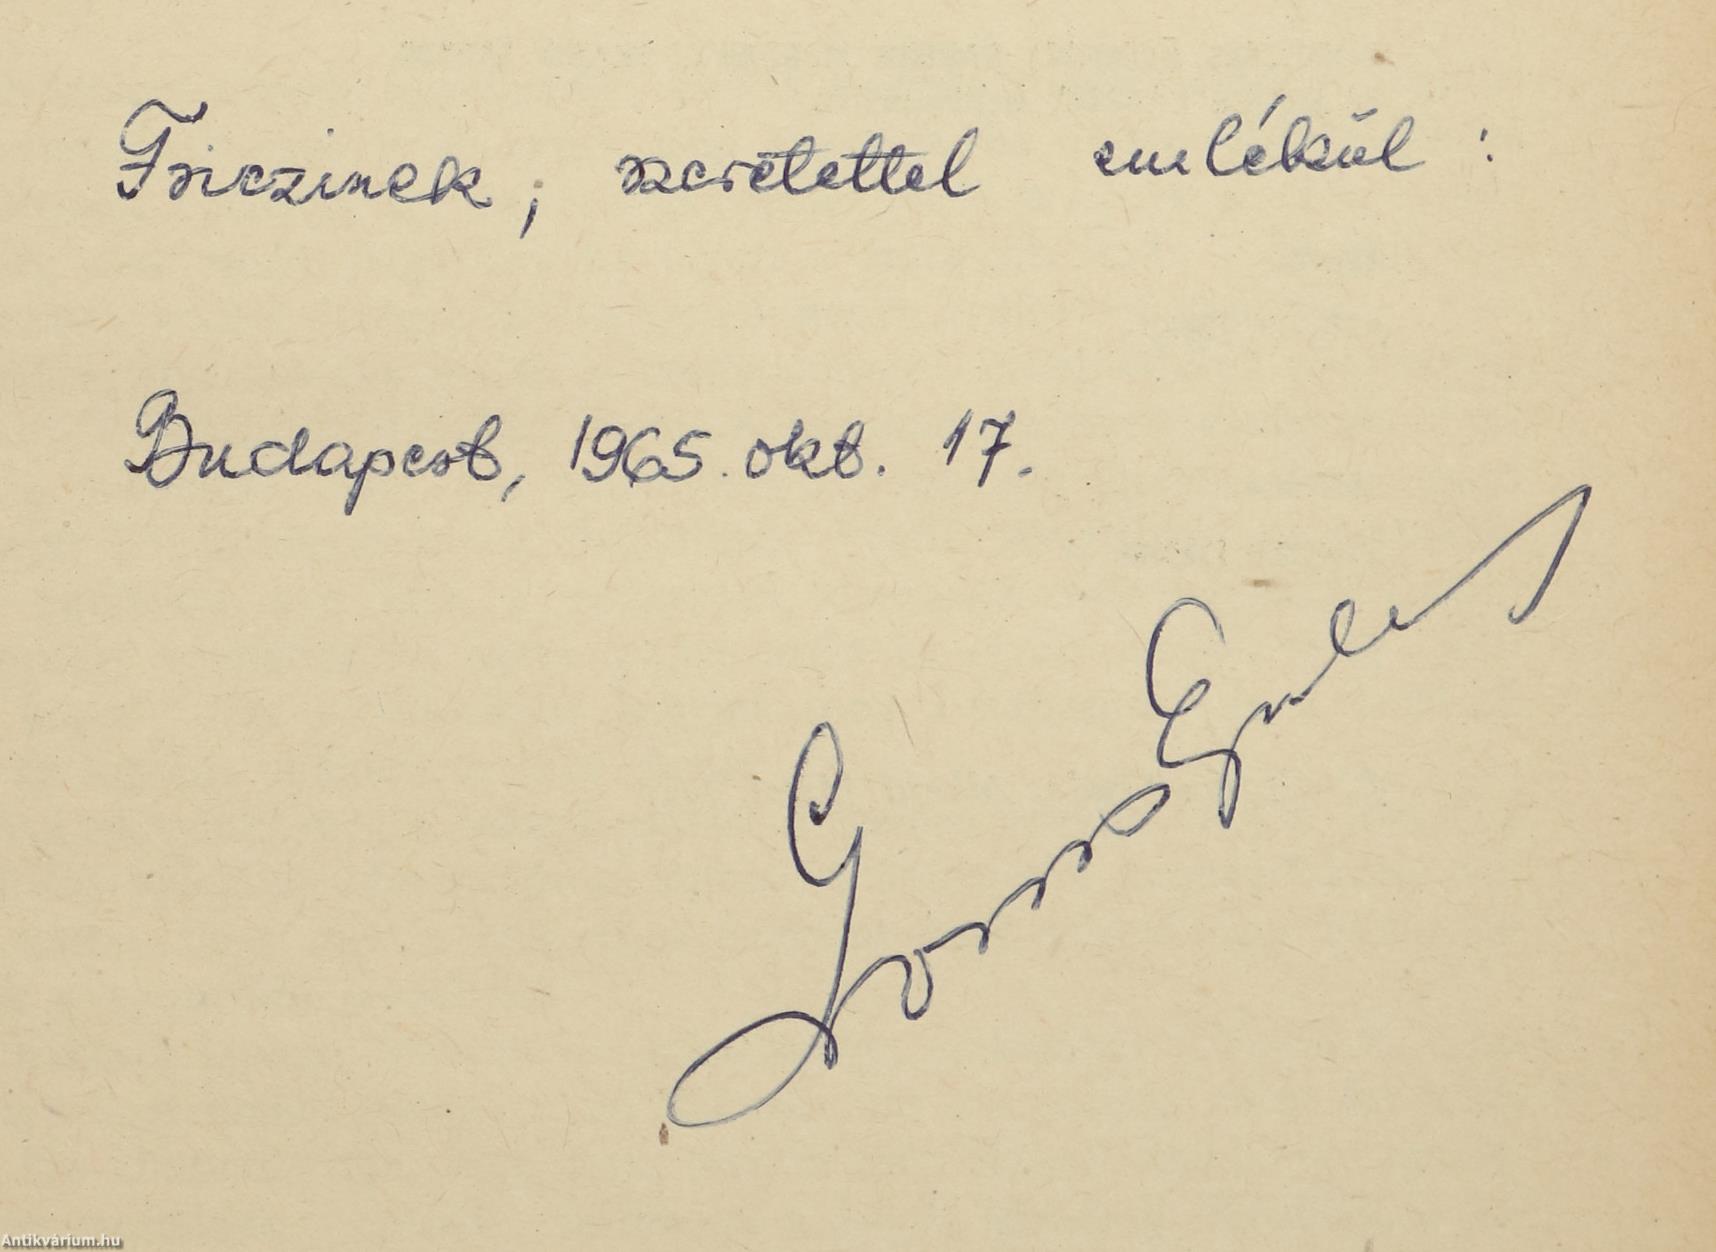 Friczinek, szeretettel emlékül :
Budapest, 1965. okt. 17.
Antikvárium.hu